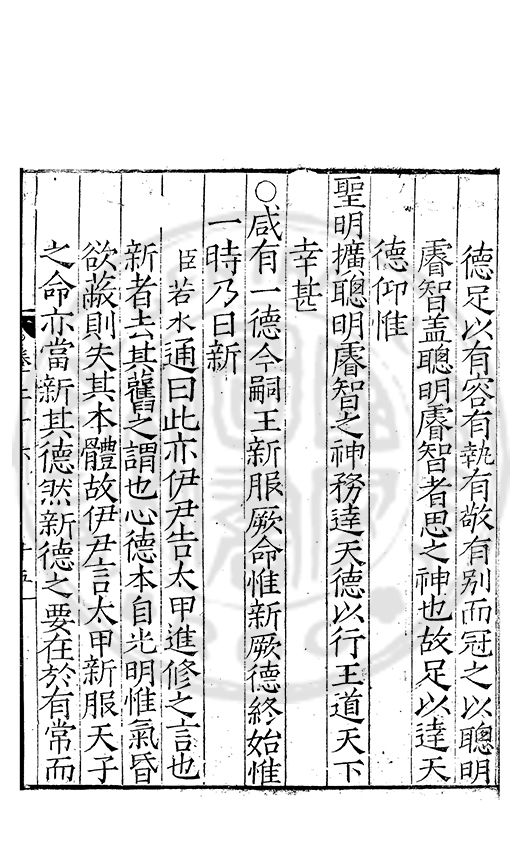 德足以有容有執有敬有别而冠之以聰明
睿智盖聰明睿智者思之神也故足以達天
德仰惟
聖明擴聰明睿智之神務達天德以行王道天下
幸甚
○咸有一德今嗣王新服厥命惟新厥德終始惟
一時乃日新
臣若水通曰此亦伊尹告太甲進修之言也
新者去其舊之謂也心德本自光明惟氣昏
欲蔽則失其本體故伊尹言太甲新服天子
之命亦當新其德然新德之要在於有常而
卷二十六
十五